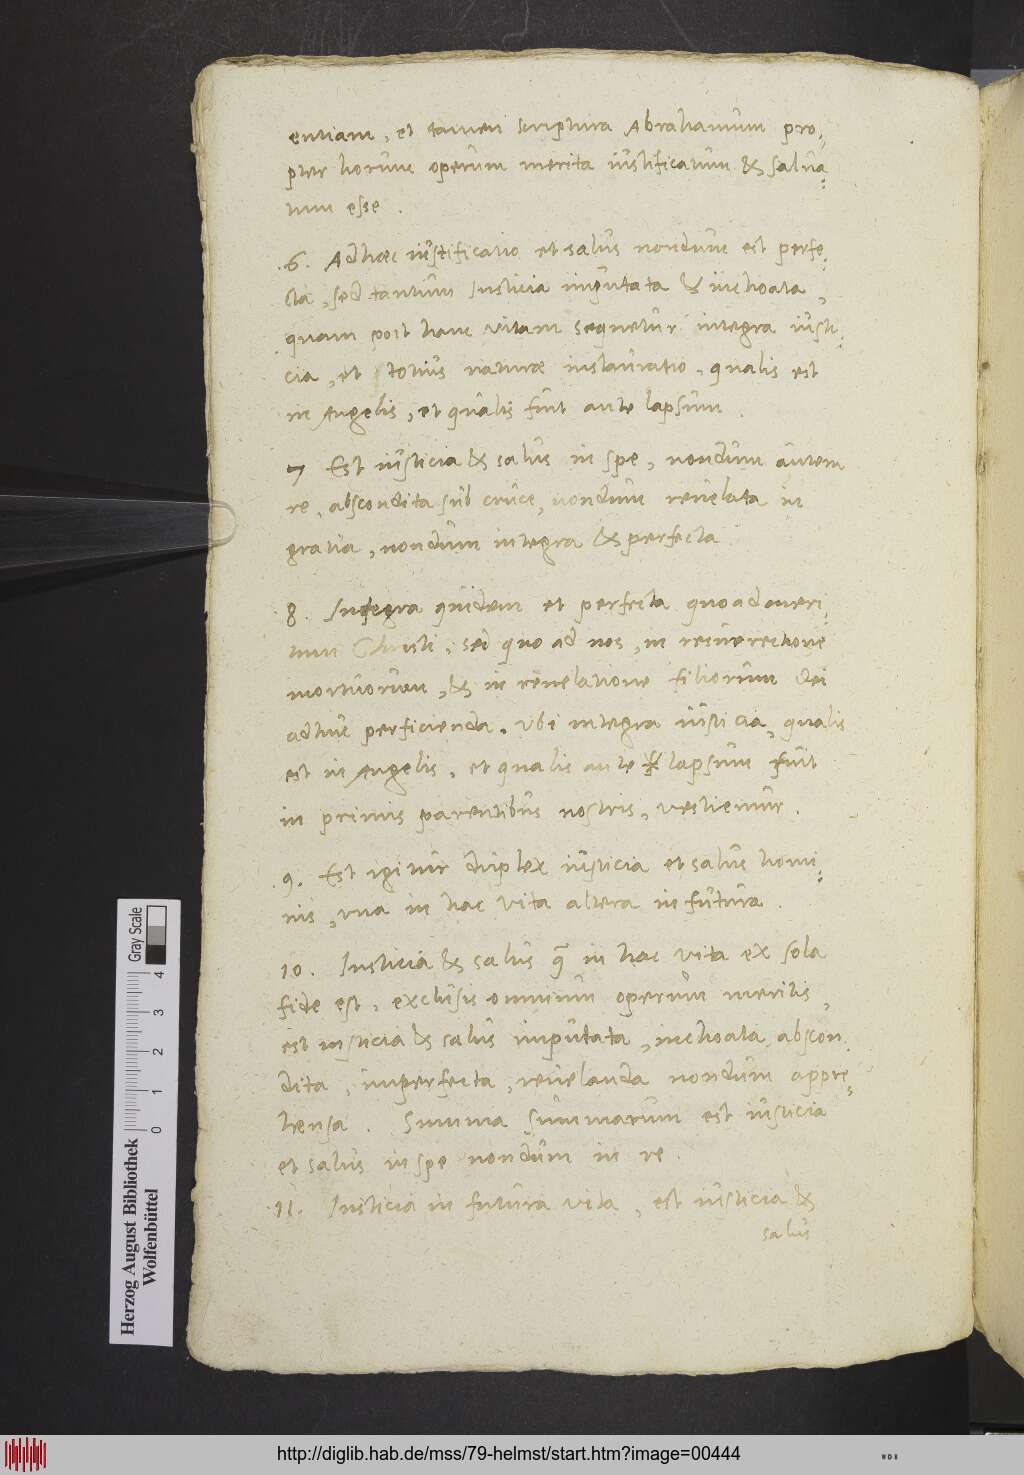 entiam, et tamen scriptura Abrahamum pro-
pter horum operum merita iustificatum & salua-
tum esse.
6. Adhaec iustificatio et salus nondum est perfe-
cta, sed tantum Iusticia imputata & inchoata,
quam post hanc vitam sequetur integra iusti-
cia, et totius naturae instauratio, qualis est
in Angelis, et qualis fuit ante lapsum.
7 Est iusticia & salus in spe, nondum autem
re, abscondita sub cruce, nondum reuelata in
gratia, nondum integra & perfecta
8. Integra quidem et perfecta quo ad meri-
tum Christi, sed quo ad nos, in resurrectione
mortuorum, & in reuelatione filiorum Dei
adhuc perficienda. Vbi integra iusticia, qualis
est in Angelis, et qualis ante lapsum fuit
in primis parentibus nostris, vestiemur.
9. Est igitur duplex iusticia et salus homi-
nis, vna in hac vita altera in futura.
10. Iusticia & salus q̃ in hac vita ex sola
fide est, exclusis omnium operum meritis,
est iusticia & salus imputata, inchoata, abscon-
dita, imperfecta, reuelanda nondum appre-
hensa. Summa summarum est iusticia
et salus in spe nondum in re.
11. Iusticia in futura vita, est iusticia &
salus
Gray Scale
0 1 2 3 4
Herzog August Bibliothek
Wolfenbüttel
http://diglib.hab.de/mss/79-helmst/start.htm?image=00444
WDB